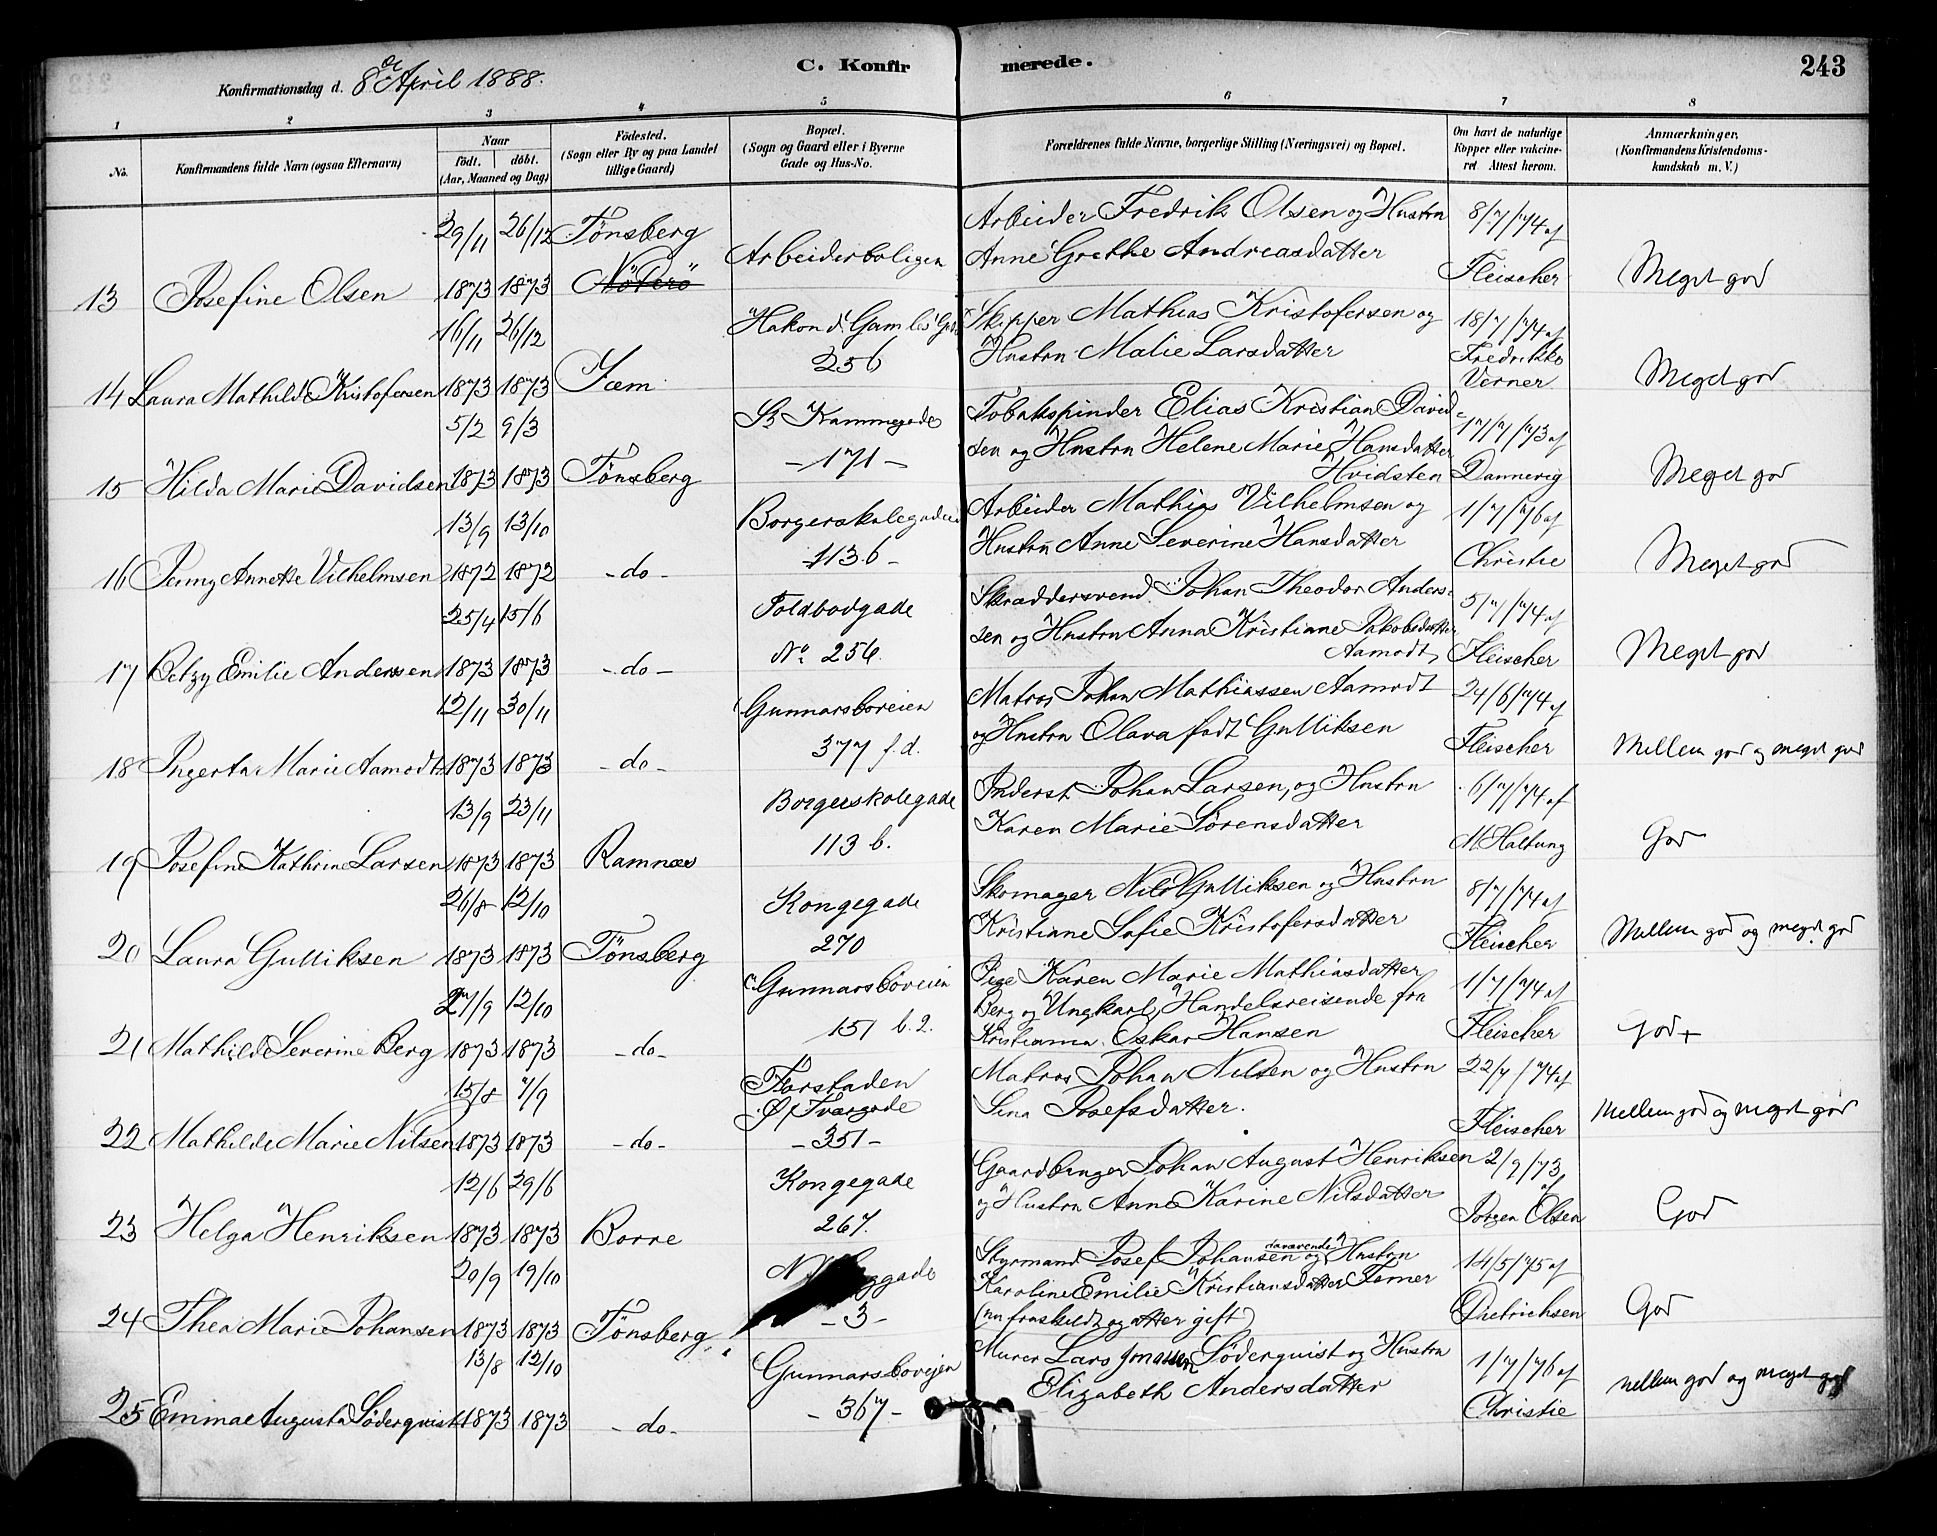 243
C. Konfirmerede.
Konfirmationsdag d. 8de April 1888.
1 2 3 4 5 6 7 8
No.
Konfirmandens fulde Navn (ogsaa Efternavn)
Naar
födt. döbt.
(Aar, Maaned og Dag)
Födested.
(Sogn eller By og paa Landet
tillige Gaard)
Bopæl.
(Sogn og Gaard eller i Byerne
Gade og Hus-No.
Forældrenes fulde Navne, borgerlige Stilling (Næringsvei) og Bopæl.
Om havt de naturlige
Kopper eller vakcine-
ret Attest herom.
Anmærkninger.
(Konfirmandens Kristendoms-
kundskab m. V.)
29/11 26/12 Tønsberg
Arbeiderboligen
Arbeider Fredrik Olsen og Hustru
Anne Grethe Andreasdatter
8/7/74 af
Fleischer
Meget god
13 Josefine Olsen 1873 1873 Nøterö
16/11 26/12
Hakon d. Gamles Gd
256
Skipper Mathias Kristofersen og
Hustru Malie Larsdatter
18/7/74 af
Fredrikke
Verner
Meget god
14 Laura Mathilde Kristofersen 1873 1873 Sem
5/2 9/3
St Kammegade
-171-
Tobakspinder Elias Kristian David-
sen og Hustru Helene Marie Hansdatter
Hvidsten
17/7/73 af
Dannevig
Meget god
15 Hilda Marie Davidsen 1873 1873 Tønsberg
13/9 13/10
Borgerskolegaden
-113 b-
Arbeider Mathias Vilhelmsen og
Hustru Anne Severine Hansdatter
1/7/76 af
Christie
Meget god
16 Jenny Annette Vilhelmsen 1872 1872 -do-
25/4 15/6
Toldbodgade
No 256.
Skræddersvend Johan Theodor Anders-
sen og Hustru Anna Kristiane Jakobsdatter
Aamodt,
5/7/74 af
Fleischer
Meget god
17 Betzy Emilie Anderssen 1873 1873 -do-
12/11 30/11
Gunnarsboveien
377 f.d.
Matros Johan Mathiassen Aamodt
og Hustru Olava født Gulliksen
24/6/74 af
Fleischer
Mellem god og meget god
18 Ingerta Marie Aamodt 1873 1873 -do-
13/9 23/11
Borgerskolegade
113 b.
Inderst Johan Larsen, og Hustru
Karen Marie Sørensdatter
6/7/74 af
M. Haltung
God
19 Josefine Kathrine Larsen 1873 1873 Ramnæs
26/8 12/10
Kongegade
270
Skomager Nils Gulliksen og Hustru
Kristiane Sofie Kristofersdatter
8/7/74 af
Fleischer
Mellem god og meget god
20 Laura Gulliksen 1873 1873 Tønsberg
27/9 12/10
Gunnarsboveien
151 b.2.
Pige Karen Marie Mathiasdatter
Berg og Ungkarl, Handelsreisende fra
Kristiania Oskar Hansen
1/7/74 af
Fleischer
God+
21 Mathilde Severine Berg 1873 1873 -do-
15/8 7/9
Farstaden
Ø. Tværgade
-351-
Matros Johan Nilsen og Hustru
Sina Josefsdatter.
22/7/74 af
Fleischer
Mellem god og meget god
22 Mathilde Marie Nilsen 1873 1873 -do-
12/6 29/6
Kongegade
267.
Gaardbruger Johan August Henriksen
og Hustru Anne Karine Nilsdatter
2/9/73 af
Jørgen Olsen
God
23 Helga Henriksen 1873 1873 Borre
20/9 19/10
-3-
Styrmand Josef Johansen og daværende Hustru
Karoline Emilie Kristiansdatter Femer
(nu fraskildt og atter gift)
14/5/75 af
Dietrichsen
God
24 Thea Marie Johansen 1873 1873 Tønsberg
13/8 12/10
Gunnarsbovejen
-367-
Murer Lars Jonassen Söderquist og Hustru
Elizabeth Andersdatter
1/7/76 af
Christie
mellem god og meget god
25 Emma Augusta Söderquist 1873 1873 -do-